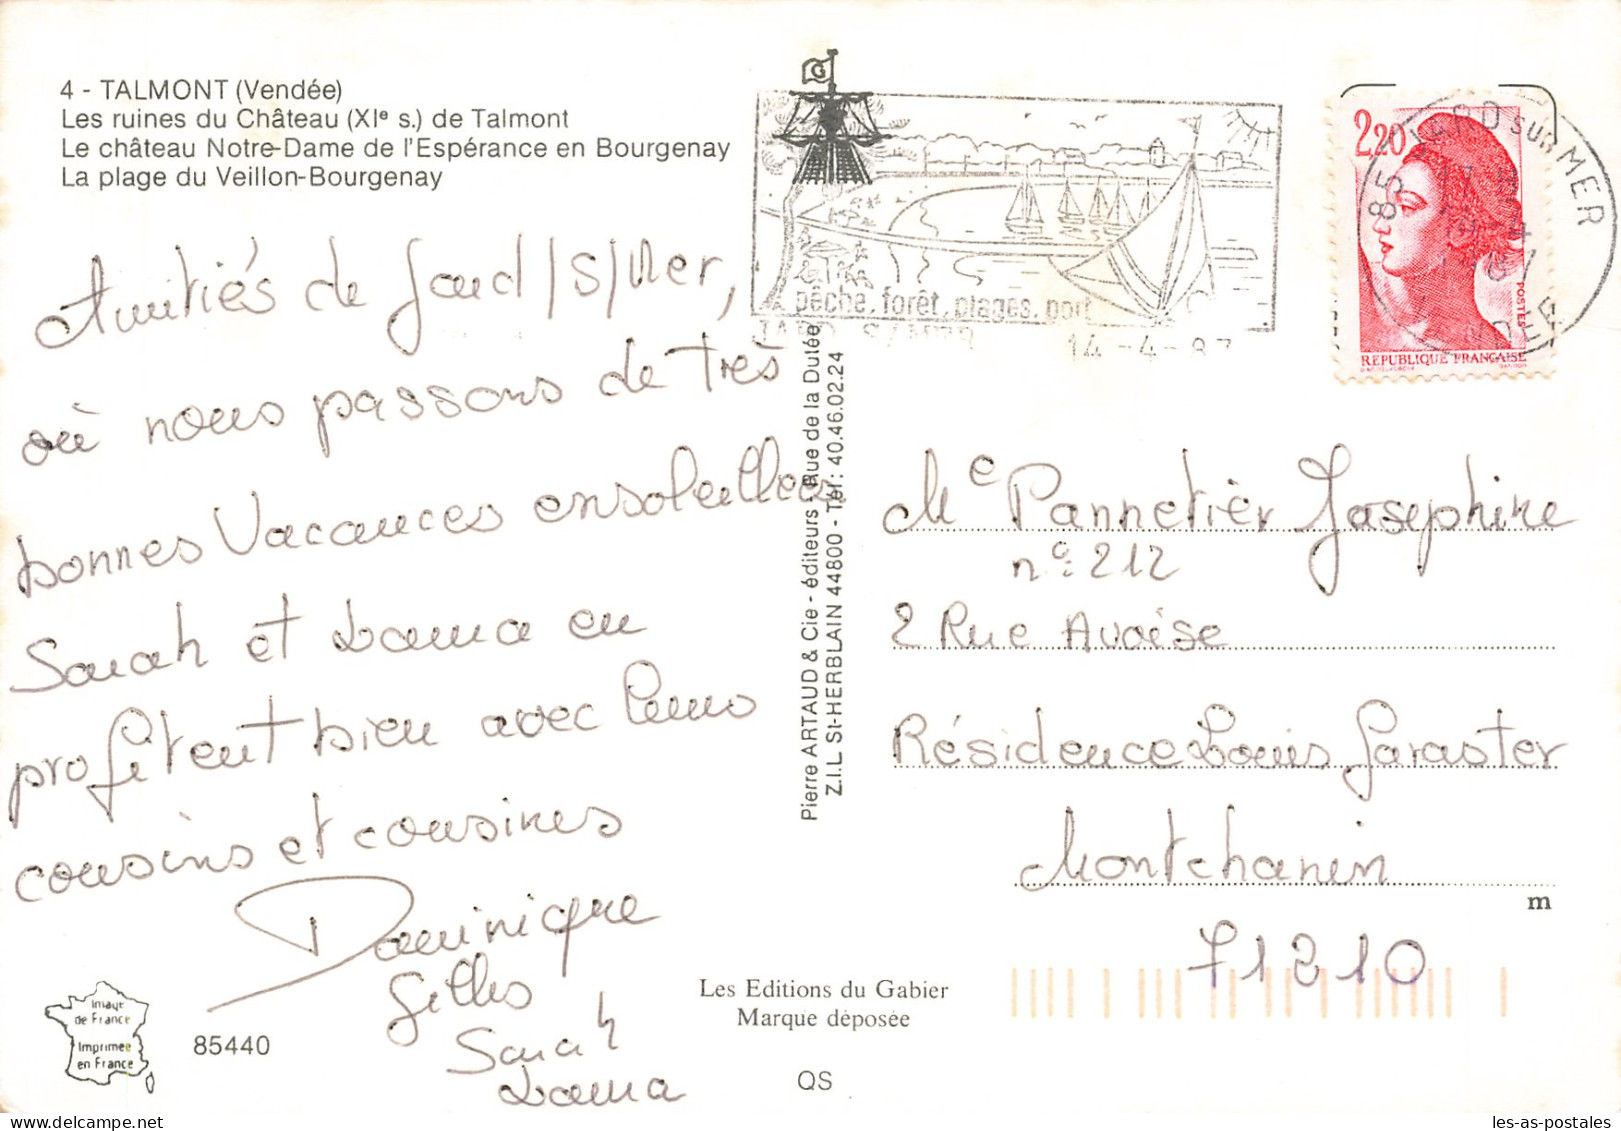 4 - TALMONT (Vendée)
Les ruines du Château (XIe s.) de Talmont
Le château Notre-Dame de l'Espérance en Bourgenay
La plage du Veillon-Bourgenay
Amitiés de Jard/S/Mer,
où nous passons de très
bonnes Vacances ensoleillées
Sarah et Laura en
profitent bien avec leurs
cousins et cousines
Dominique
Gilles
Sarah
Laura
Image
de France
Imprimée
en France
85440
Pierre ARTAUD & Cie - éditeurs - Rue de la Dutée
Z.I.L St-HERBLAIN 44800 - Tél : 40.46.02.24
Les Editions du Gabier
Marque déposée
QS
G
pêche, forêt, plages, port
JARD S/MER
14 -4- 87
85 JARD SUR MER
2,20
POSTES
REPUBLIQUE FRANÇAISE
Me Pannetier Josephine
n° 212
2 Rue Avoise
Résidence Louis Garaster
Montchanin
m
71210
les-as-postales